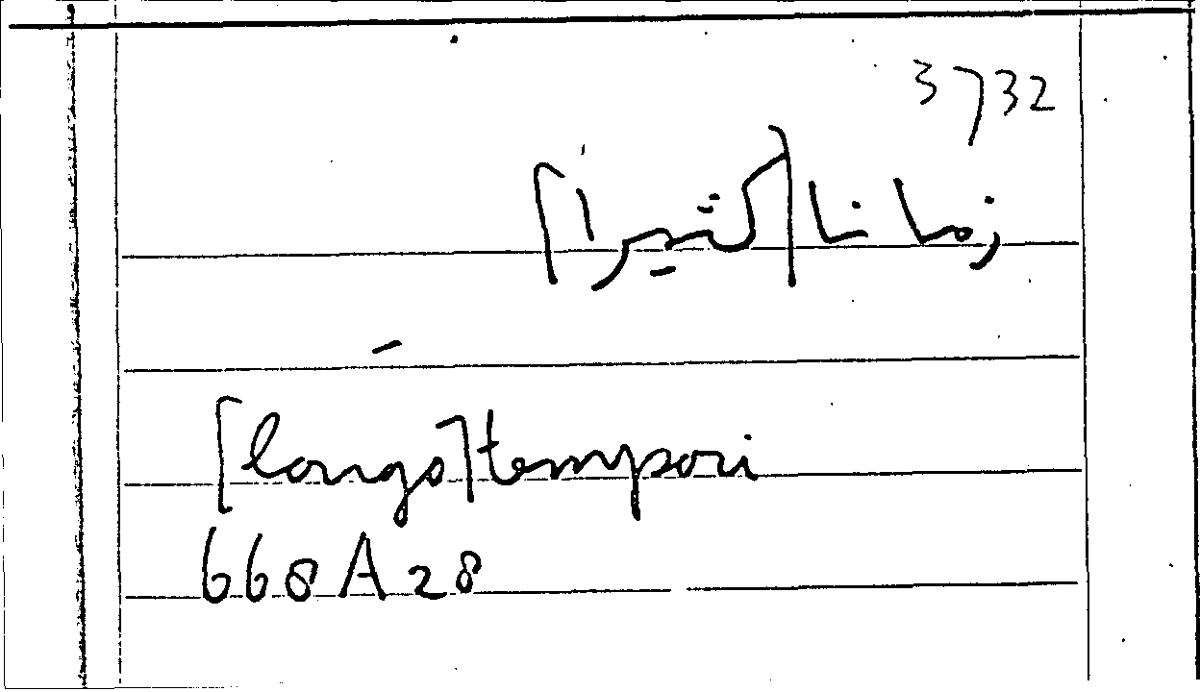 3732
زمانا [كثيرا]
[longo] tempori
668 A 28